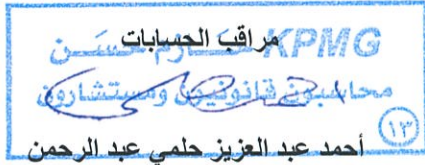 مراقب الحسابات
KPMG حازم حسن
محاسبون قانونيون ومستشارون
(١٣)
أحمد عبد العزيز حلمي عبد الرحمن